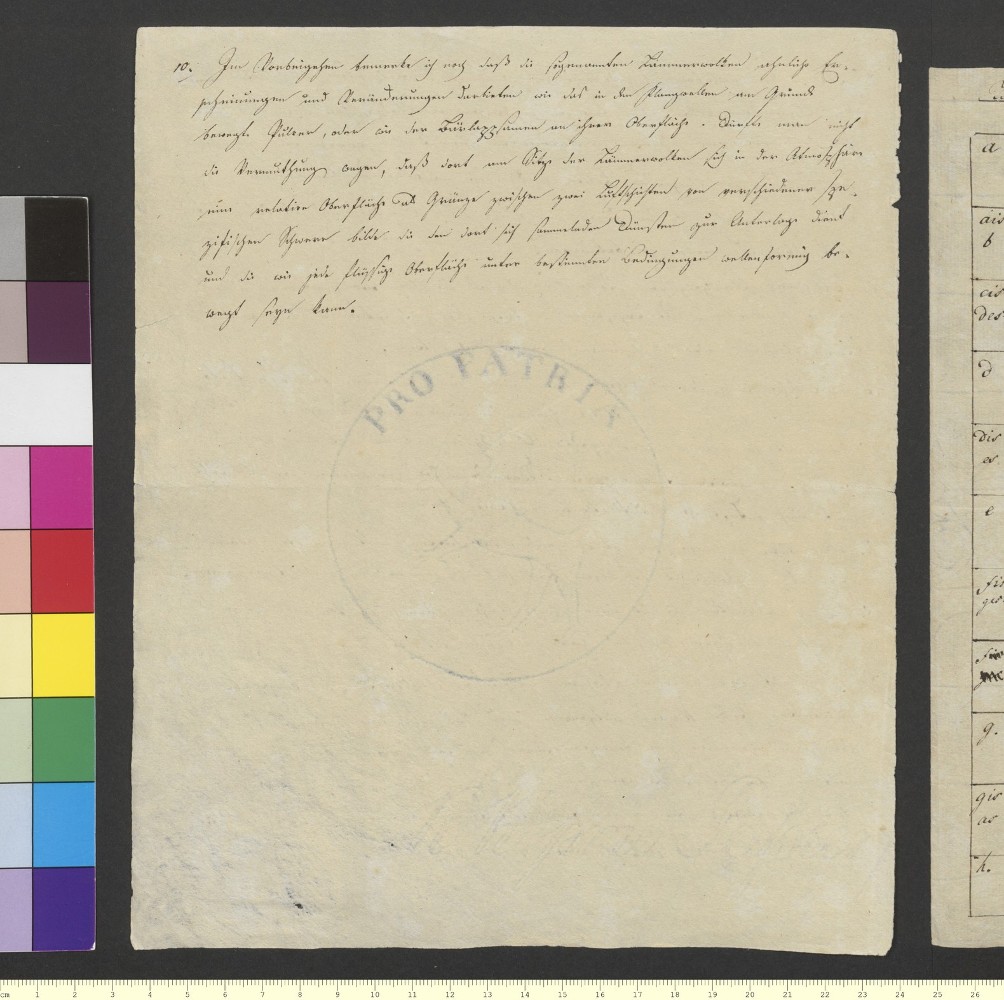 10. Im Vorbeigehen bemerke ich noch daß die sogenannten Lämmerwolken ähnliche Er-
scheinungen und Veränderungen darbieten wie das in den Klangwellen am Grunde
bewegte Pulver, oder wie der Bärlappsamen an ihrer Oberfläche. Dürfte man nicht
die Vermuthung wagen, daß dort am Sitze der Lämmerwolken sich in der Atmosphäre
eine relative Oberfläche als Gränze zwischen zwei Luftschichten von verschiedener spe-
zifischen Schwere bilde die den dort sich sammelnden Dünsten zur Unterlage dient
und die wie jede flüssige Oberfläche unter bestimmten Bedingungen wellenförmig be-
wegt seyn kann.
PRO PATRIA
a
ais
b
cis
des
d
dis
es
e
fis
ges
g.
gis
as
h.